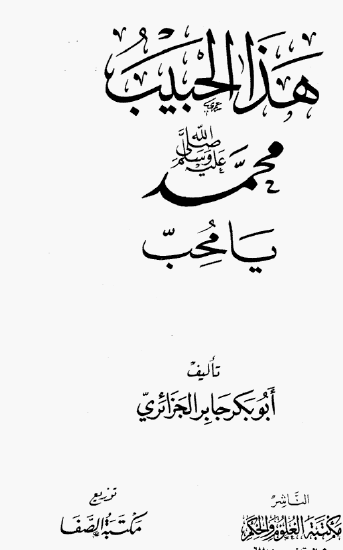 هَذَا الْحَبِيبُ
محمَّد
صلى الله عليه وسلم
يَا مُحِبّ
تأليف
أَبُو بَكر جَابِر الْجَزَائِريّ
الناشِر
مكتبَة العُلوم وَالحِكَم
توزيع
مكتبَة الصَّفَا